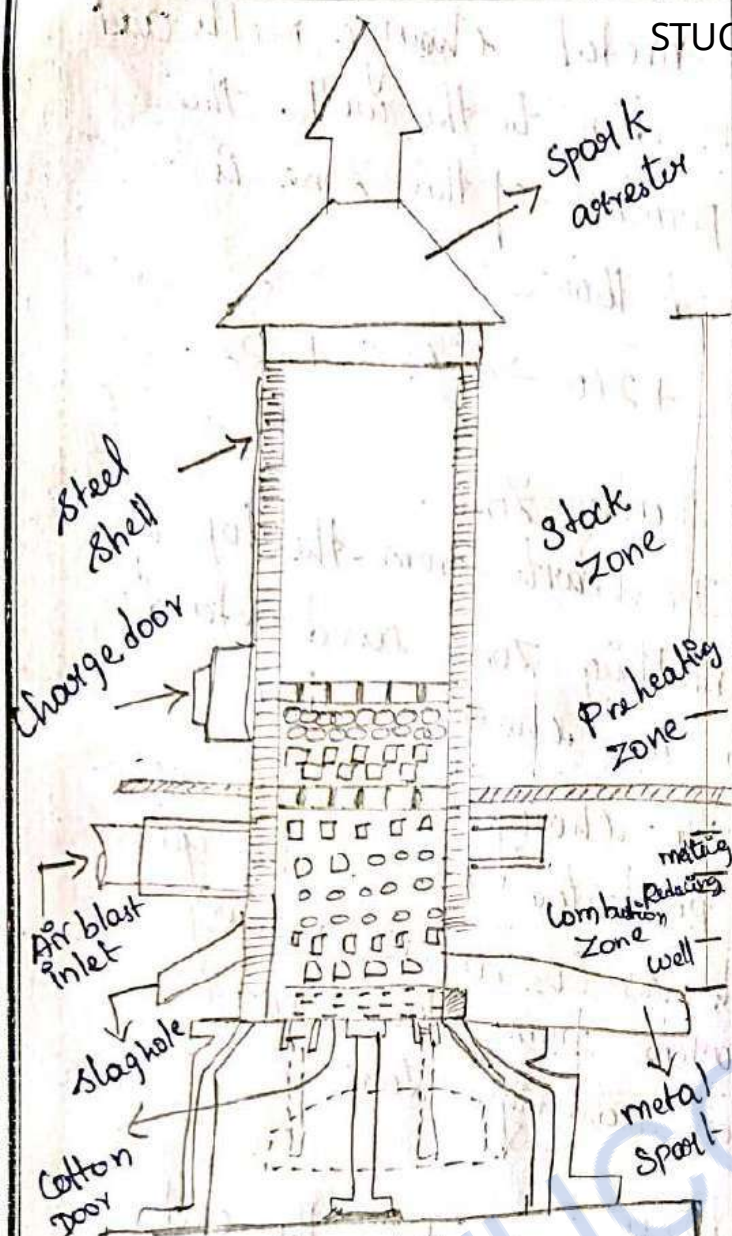 STUC
Spark
arrester
Steel
Shell
Stack
Zone
Charge door
Preheating
Zone
melting
Reducing
Combustion
Zone
well
Air blast
inlet
slaghole
metal
Spout
Cotton
Door